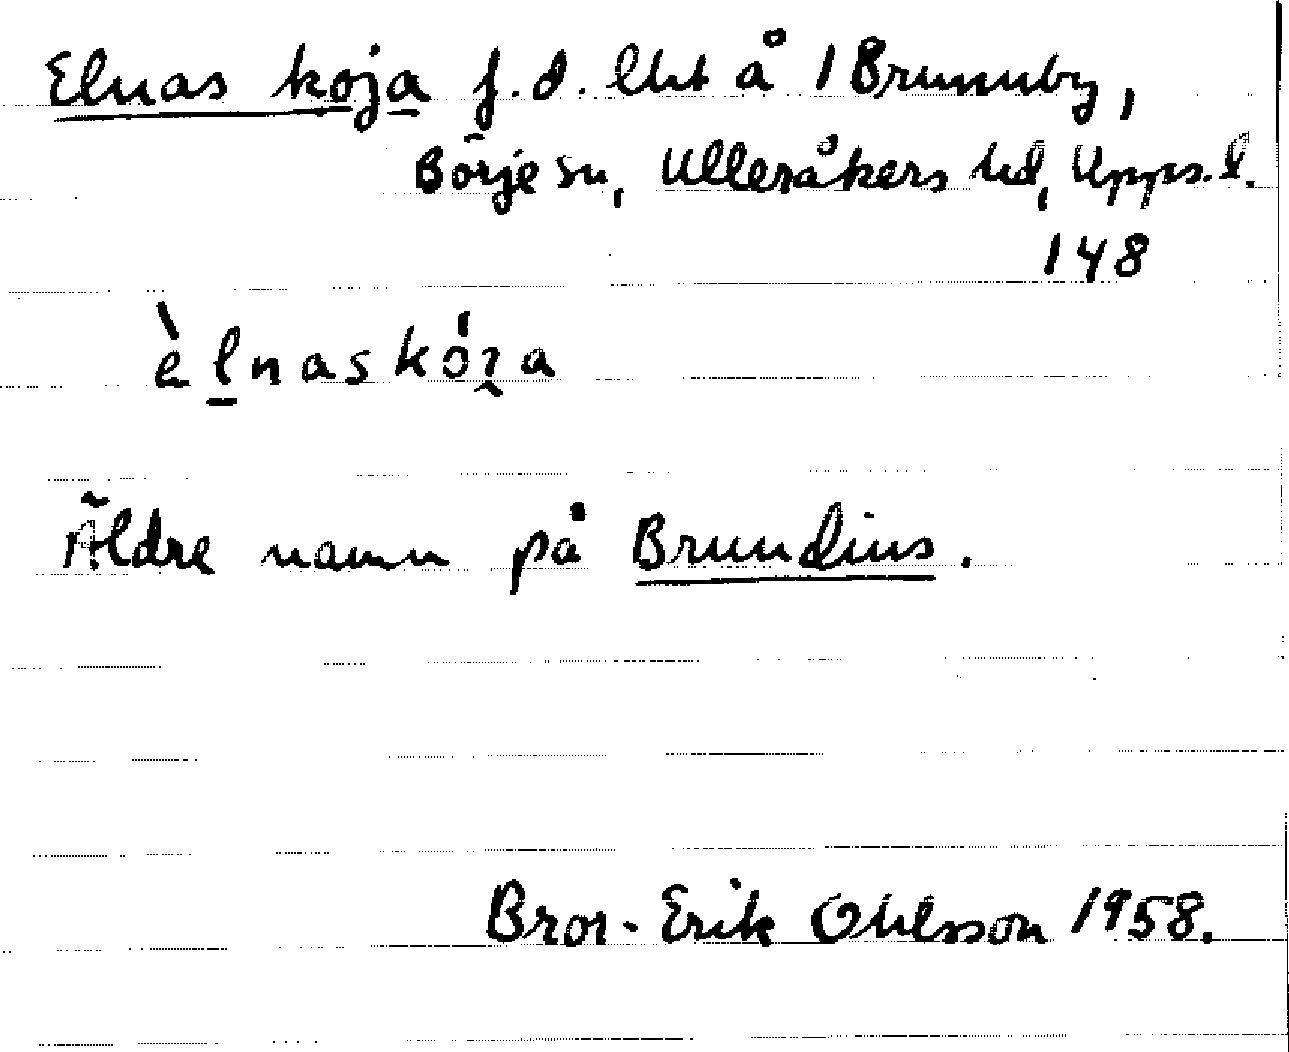 Elnas koja f.d. lht å 1 Brunnby,
Börje sn, Ulleråkers hd, Upps. l.
148
èlnaskóɀa
Äldre namn på Brundins.
Bror-Erik Ohlsson 1958.